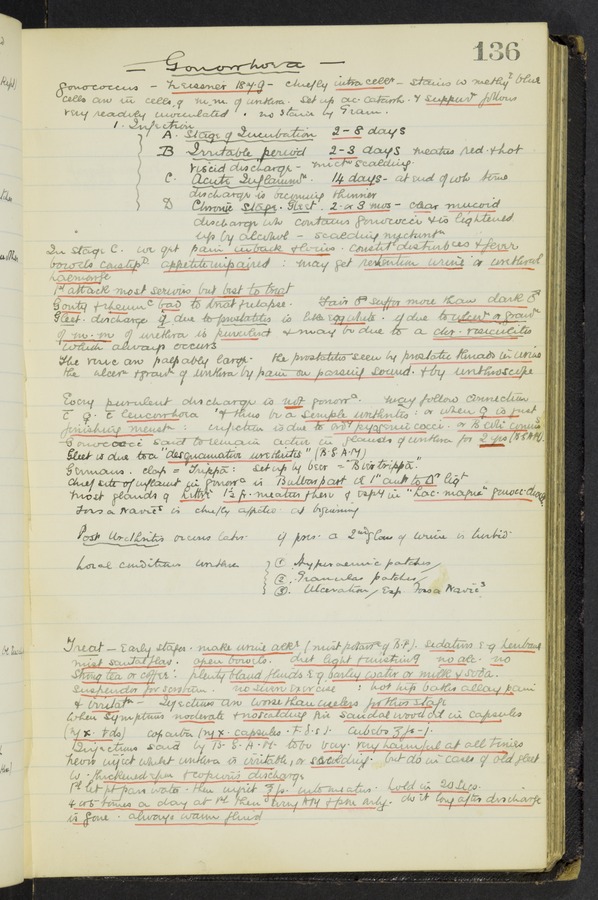 136
— Gonorrhoea —
Gonococcus - Neissner 1879 - chiefly intra cellr - stains w methyl blue
cells are in cells of m.m. of urethra. Set up ac: catarrh. & follows
very readily inoculated. no stain by Gram.
1. Infection
A. Stage of Incubation 2-8 days
B Irritable period 2-3 days meatus red & hot
viscid discharge - scalding
C. Acute Inflammn. 14 days - at end of wh time
discharge is becoming thinner
D Chronic stage. Gleet. 2 or 3 mos - clear mucoid
discharge wh contains gonococci & is lightened
up by alcohol - scalding
In stage C. we get pain in back & loins. constitl disturbces & fever
bowels constipd appetite impaired : may get retention urine or urethral
haemorrge
1st attack most serious but best to treat
Gouty & rheumc bad to treat & relapse. Fair ♂ suffer more than dark ♂
Gleet. discharge if due to prostatitis is like egg white. if due to ulcer or granr
of m.m. of urethra is purulent & may be due to a chr. vesiculitis
which always occurs
The are palpably large. the prostatitis seen by prostatic threads in urine
the ulcer & granr of urethra by pain on passing sound. & by urethroscope
Every purulent discharge is not gonorr. may follow connection
c̄ ♀. c̄ leucorrhoea & thus be a simple urethritis : or when ♀ is just
finishing menstr : infection is due to ordy pyogenic cocci. or B. coli comms
Gonococci said to remain active in glands of urethra for 2 yrs (B.S.A.M)
Gleet is due to a "desquamative urethritis" (B.S.A.M)
Germans. clap = Tripper: set up by beer = "Biertripper"
chief site of inflamt in gonorr is Bulbous part at 1" ant to Δr ligt
most glands of Littré 1½ fr. meatus & here if esply in "Lac. magna" gonoc: chiefly
Fossa Navicr is chiefly affected at beginning
Post Urethritis occurs later. if pres: a 2nd glass of urine is turbid
Local conditions urethra
1. Hyperaemic patches
2. Granular patches
3. Ulceration, Esp. Fossa Navicr
Treat - Early stages. make urine alkr (mist potass of B.P.). sedatives e.g. henbane
mist santal flav. open bowels. diet light & nourishing no alc. no
strong tea or coffee: plenty bland fluids e.g barley water or milk & soda.
suspender for scrotum. no severe exercise : hot hip baths allay pain
& irritatn - Injections are worse than useless for this stage
When symptoms moderate & no scalding give sandal wood oil in capsules
(mx. tds) copaiba (mx. capsules. t.d.s). cubebs
Injections said by B.S.A.M. to be very harmful at all times
never inject whilst urethra is irritable, or scalding but do in cases of old gleet
w. thickened & copious discharge
1st let pt pass water. then inject into meatus. hold in 20 secs.
4 or 5 times a day at 1st then do it long after discharge
is gone. always warm fluid